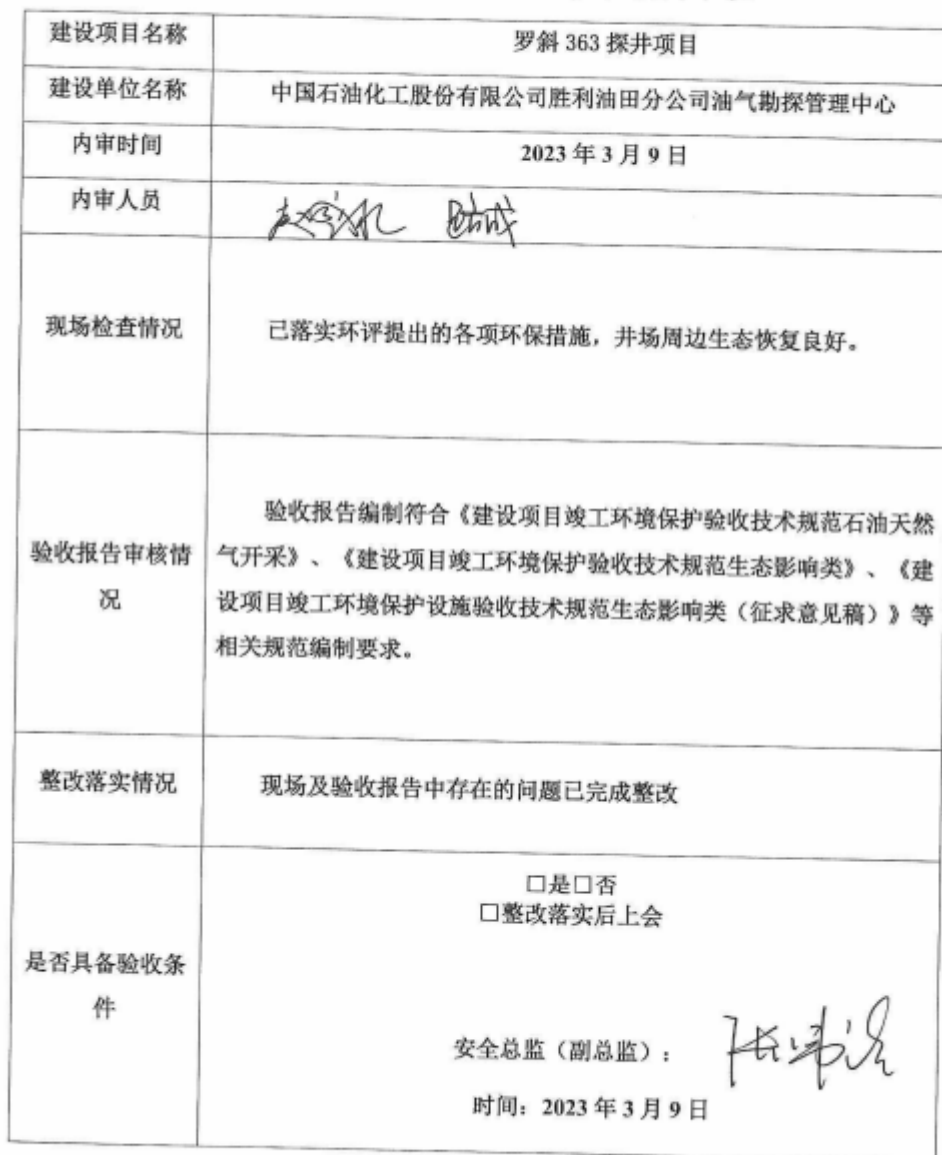 建设项目名称
罗斜 363 探井项目
建设单位名称
中国石油化工股份有限公司胜利油田分公司油气勘探管理中心
内审时间
2023 年 3 月 9 日
内审人员
现场检查情况
已落实环评提出的各项环保措施，井场周边生态恢复良好。
验收报告审核情
况
验收报告编制符合《建设项目竣工环境保护验收技术规范石油天然
气开采》、《建设项目竣工环境保护验收技术规范生态影响类》、《建
设项目竣工环境保护设施验收技术规范生态影响类（征求意见稿）》等
相关规范编制要求。
整改落实情况
现场及验收报告中存在的问题已完成整改
是否具备验收条
件
□是□否
□整改落实后上会
安全总监（副总监）：
时间：2023 年 3 月 9 日